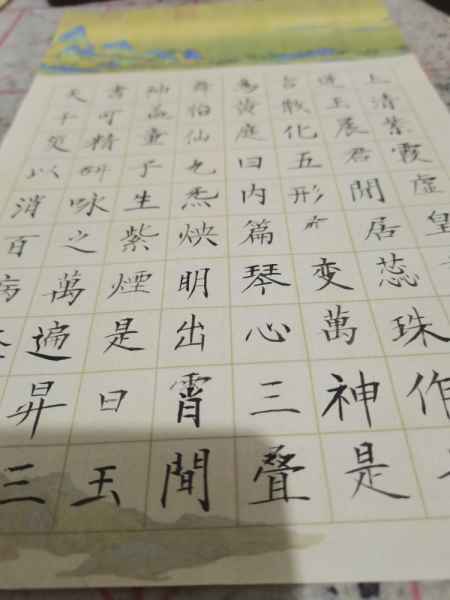 上清紫霞虛皇
道玉晨君閒居蕊珠作
言散化五形变萬神是
為黃庭曰內篇琴心三疊
舞胎仙九炁映明出霄間
神蓋童子生紫煙是曰玉
書可精研咏之萬遍昇三
天千災以消百病